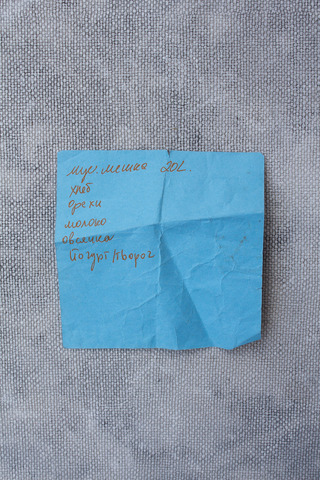 мус. мешка 20L.
хлеб
орехи
молоко
овсянка
йогурт/творог